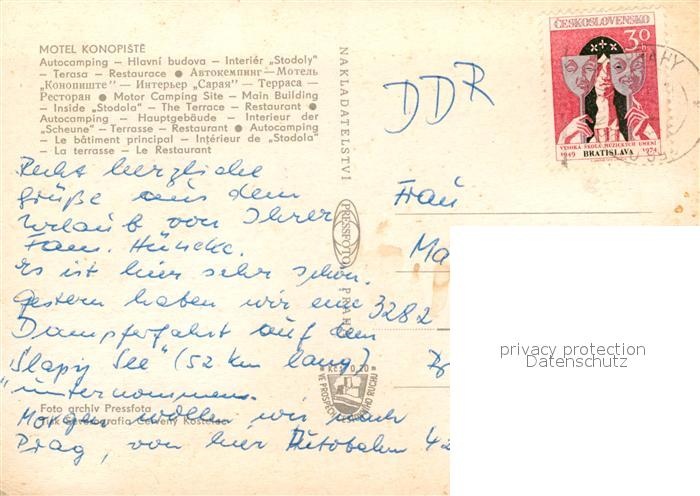 MOTEL KONOPIŠTĚ
Autocamping — Hlavní budova — Interiér „Stodoly"
— Terasa — Restaurace ● Автокемпинг — Мотель
„Конопиште" — Интерьер „Сарая" — Терраса —
Ресторан ● Motor Camping Site — Main Building
— Inside „Stodola" — The Terrace — Restaurant ●
Autocamping — Hauptgebäude — Interieur der
„Scheune" — Terrasse — Restaurant ● Autocamping
— Le bâtiment principal — Intérieur de "Stodola"
— La terrasse — Le Restaurant
Recht herzliche
Grüße aus dem
Urlaub von Ihrer
Fam. Hüncke.
Es ist hier sehr schön.
Gestern haben wir eine
Dampferfahrt auf dem
„Slapy See" (52 km lang)
unternommen.
Morgen wollen wir nach
Prag, von hier Autobahn 42
Foto archiv Pressfota
Červený Kostelec
NAKLADATELSTVÍ
PRESSFOTO
PRAHA
Kčs 0,20
VE PROSPĚCH
RUCHU
DDR
Frau
Ma
3282
ČESKOSLOVENSKO
30
VYSOKÁ ŠKOLA MÚZICKÝCH UMENÍ
1949 BRATISLAVA 1974
privacy protection
Datenschutz